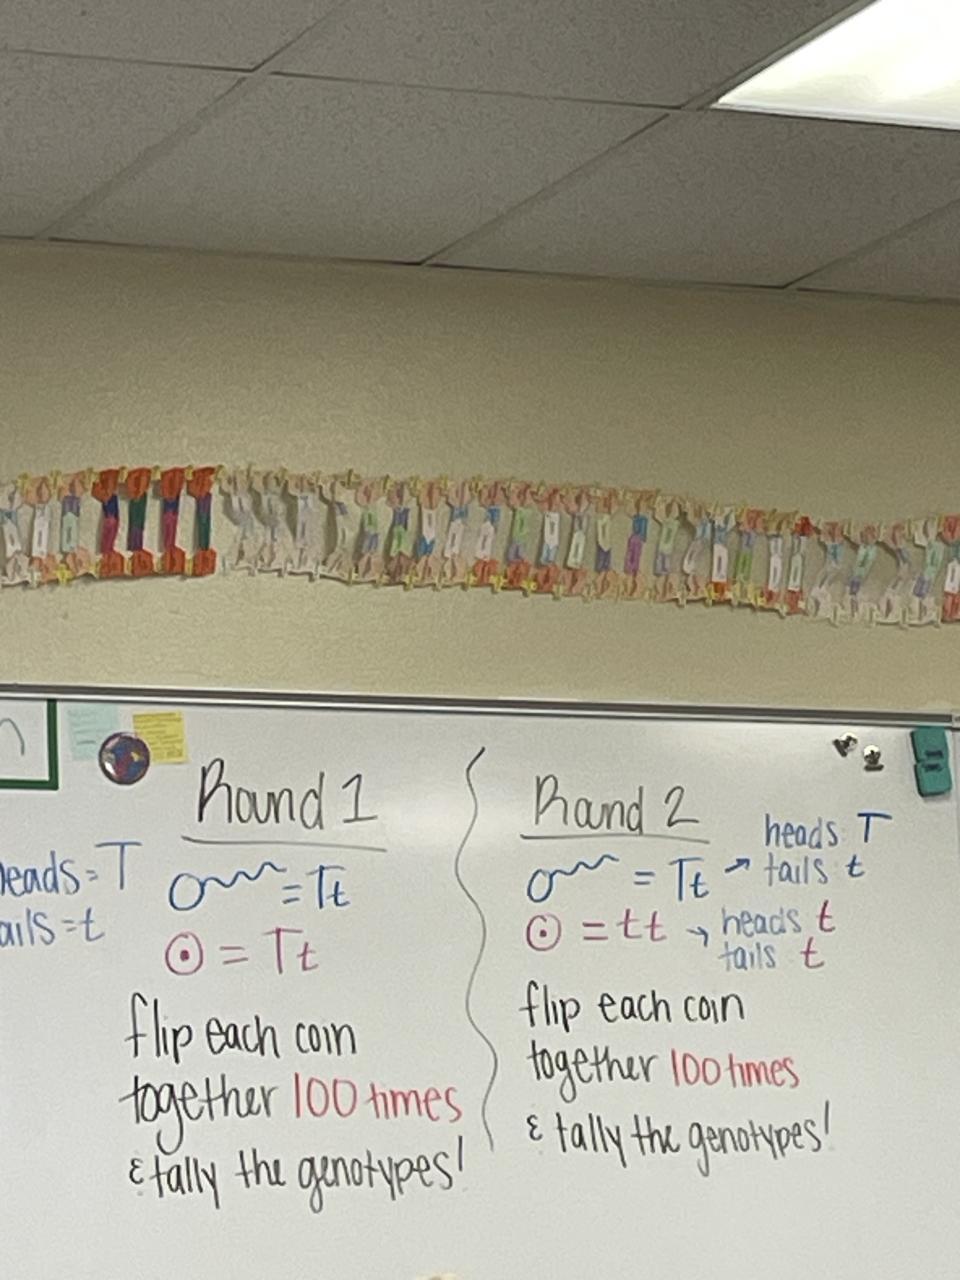 Round 1
heads = T
tails = t
= Tt
= Tt
flip each coin
together 100 times
& tally the genotypes!
Round 2
= Tt → heads T
tails t
= tt → heads t
tails t
flip each coin
together 100 times
& tally the genotypes!